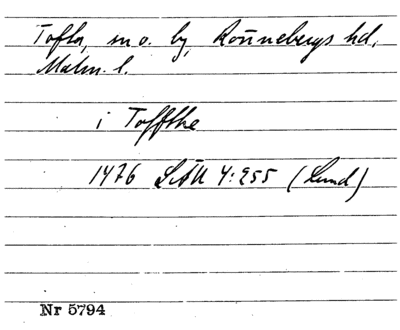 Tofta, sn o. by, Rönnebergs hd,
Malm. l.
i Toffthe
1476 LÄU 4:255 (Lund)
Nr 5794